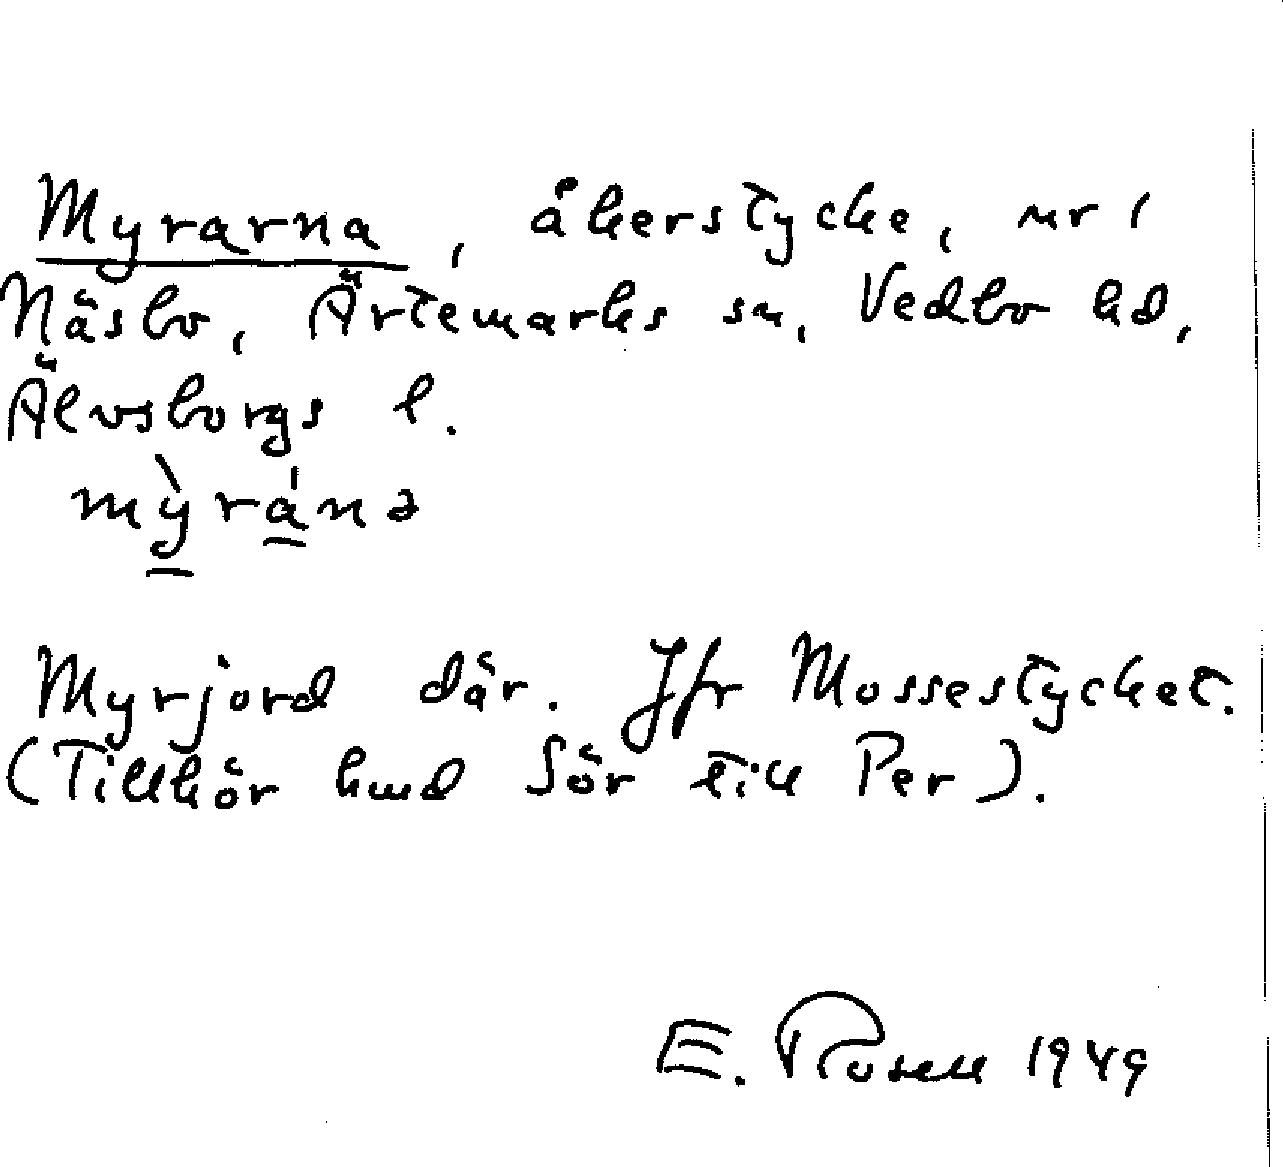 Myrarna, åkerstycke, nr 1
Näsbo, Ärtemarks sn, Vedbo hd,
Älvsborgs l.
mỳránə
Myrjord där. Jfr Mossestycket.
(Tillhör Sör till Per).
E. Rosell 1949